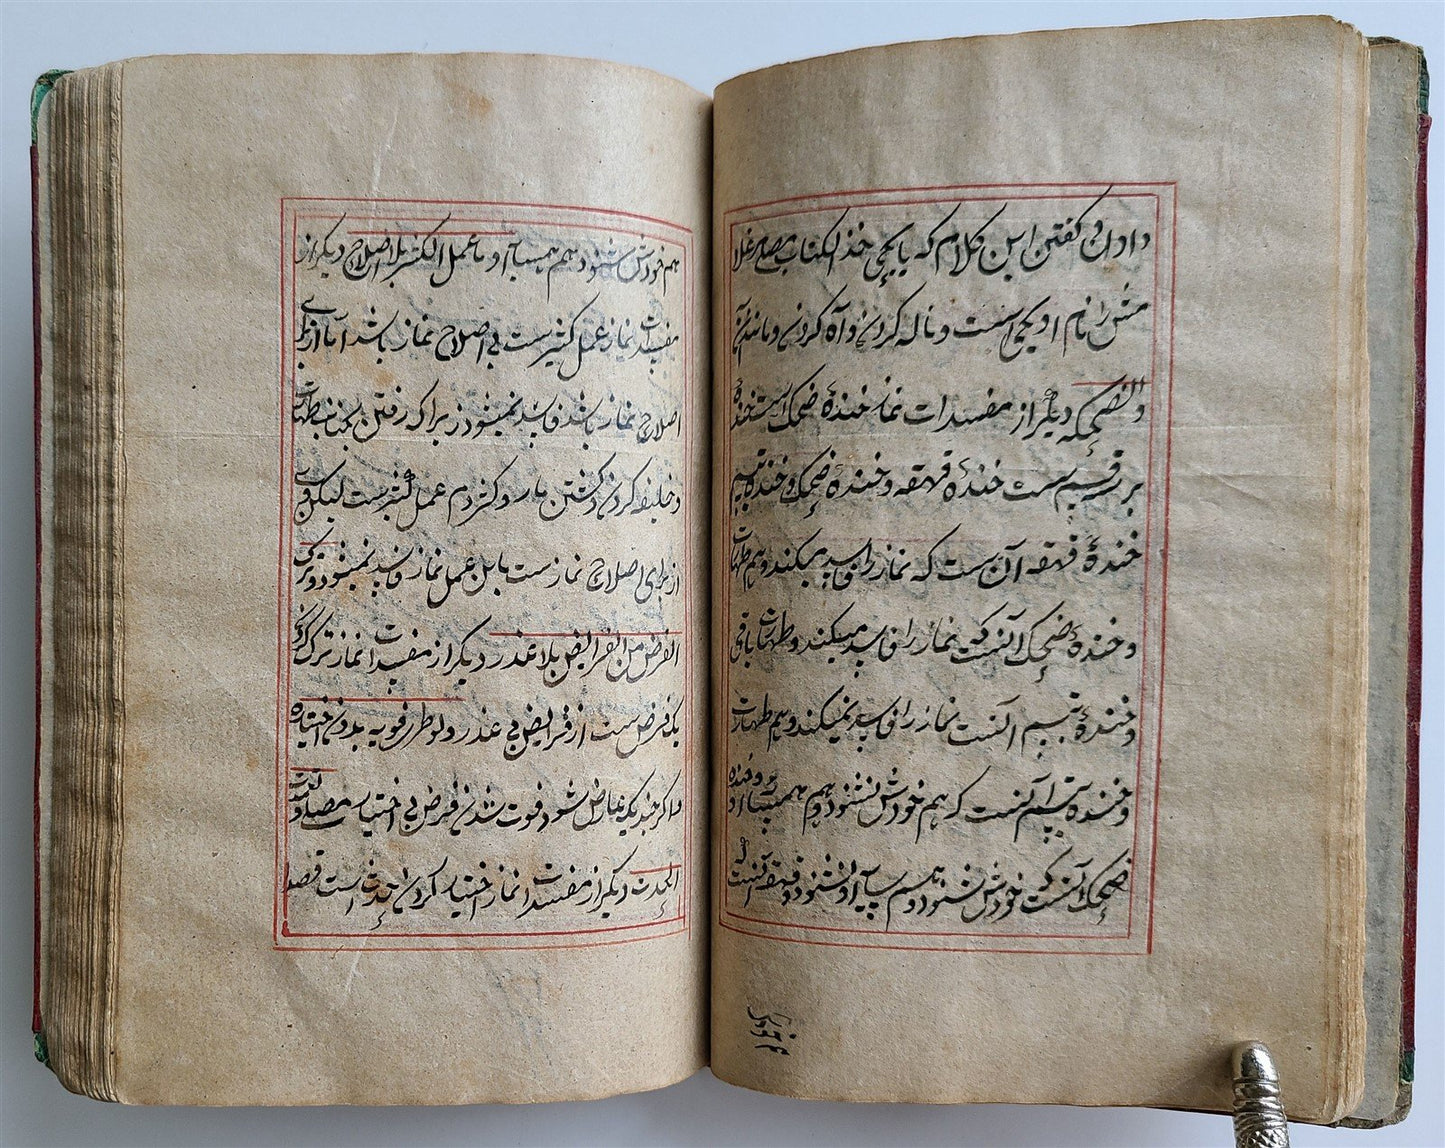 دادن و گفتن این کلام که یا یحیی خذ الکتاب مصلی غلا
مش را نام او یحیی است و ناله کردن و آه کردن و مانند آن
والضحک دیگر از مفسدات نماز خندهٔ ضحک است خنده
بر سه قسم ست خندهٔ قهقهه و خندهٔ ضحک و خندهٔ تبسم
خندهٔ قهقهه آن ست که نماز را فاسد میکند و هم طهارت
و خندهٔ ضحک آنست که نماز را فاسد میکند و طهارت باقی
و خندهٔ تبسم آنست نماز را فاسد نمیکند و هم طهارت
و خندهٔ تبسم آنست که هم خودش نشنود و هم همسایهٔ او و خنده
ضحک آنست که خودش شنود و هم سایه او نشنود و قهقهه آنست که
هم خودش شنود و هم همسایه او و العمل الکثیر بلا اصلاح دیگر از
مفسدات نماز عمل کثیر ست بی اصلاح نماز باشد اما از برای
اصلاح نماز باشد فاسد نمیشود زیراکه رفتن بجنب طهارت
و خلیفه کردن و کشتن مار و کژدم عمل کثیر ست لیکن
از برای اصلاح نماز ست باین عمل نماز فاسد نمیشود و ترک
الفرض من الفرایض بلا عذر دیگر از مفسدات نماز ترک کردن
یک فرض ست از فرایض بی عذر ولو طرفویه بلا
و اگر چند یک عارض شود فوت شدن فرض بی اختیار ست
الحدث دیگر از مفسدات نماز اختیار کردن حدث است قصد